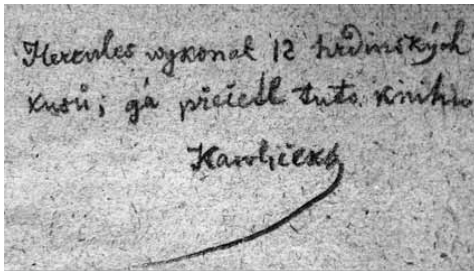 Hercules wykonal 12 hrdinských
kusů; gá přečetl tuto knihu
Kawliczek